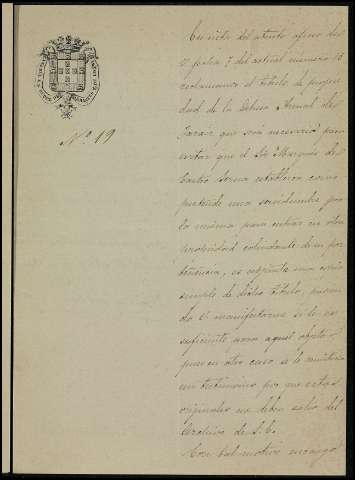 Nº 19
En vista del atento oficio de
V. fecha 7 del actual numero 16
reclamando el titulo de propie
dad de la Dehesa Arenal de
Jaraiz que será necesario para
evitar que el Sr. Marques de
Castro Serna establezca como
pretende una servidumbre por
la misma para entrar en otra
propiedad colindante de su per
tenencia, es adjunta una copia
simple de dicho titulo,
do V. manifestarme si le es
suficiente para aquel objeto
pues en otro caso se le remitiria
un testimonio por que estos
originales no deben salir del
Archivo de S. E.
Con tal motivo